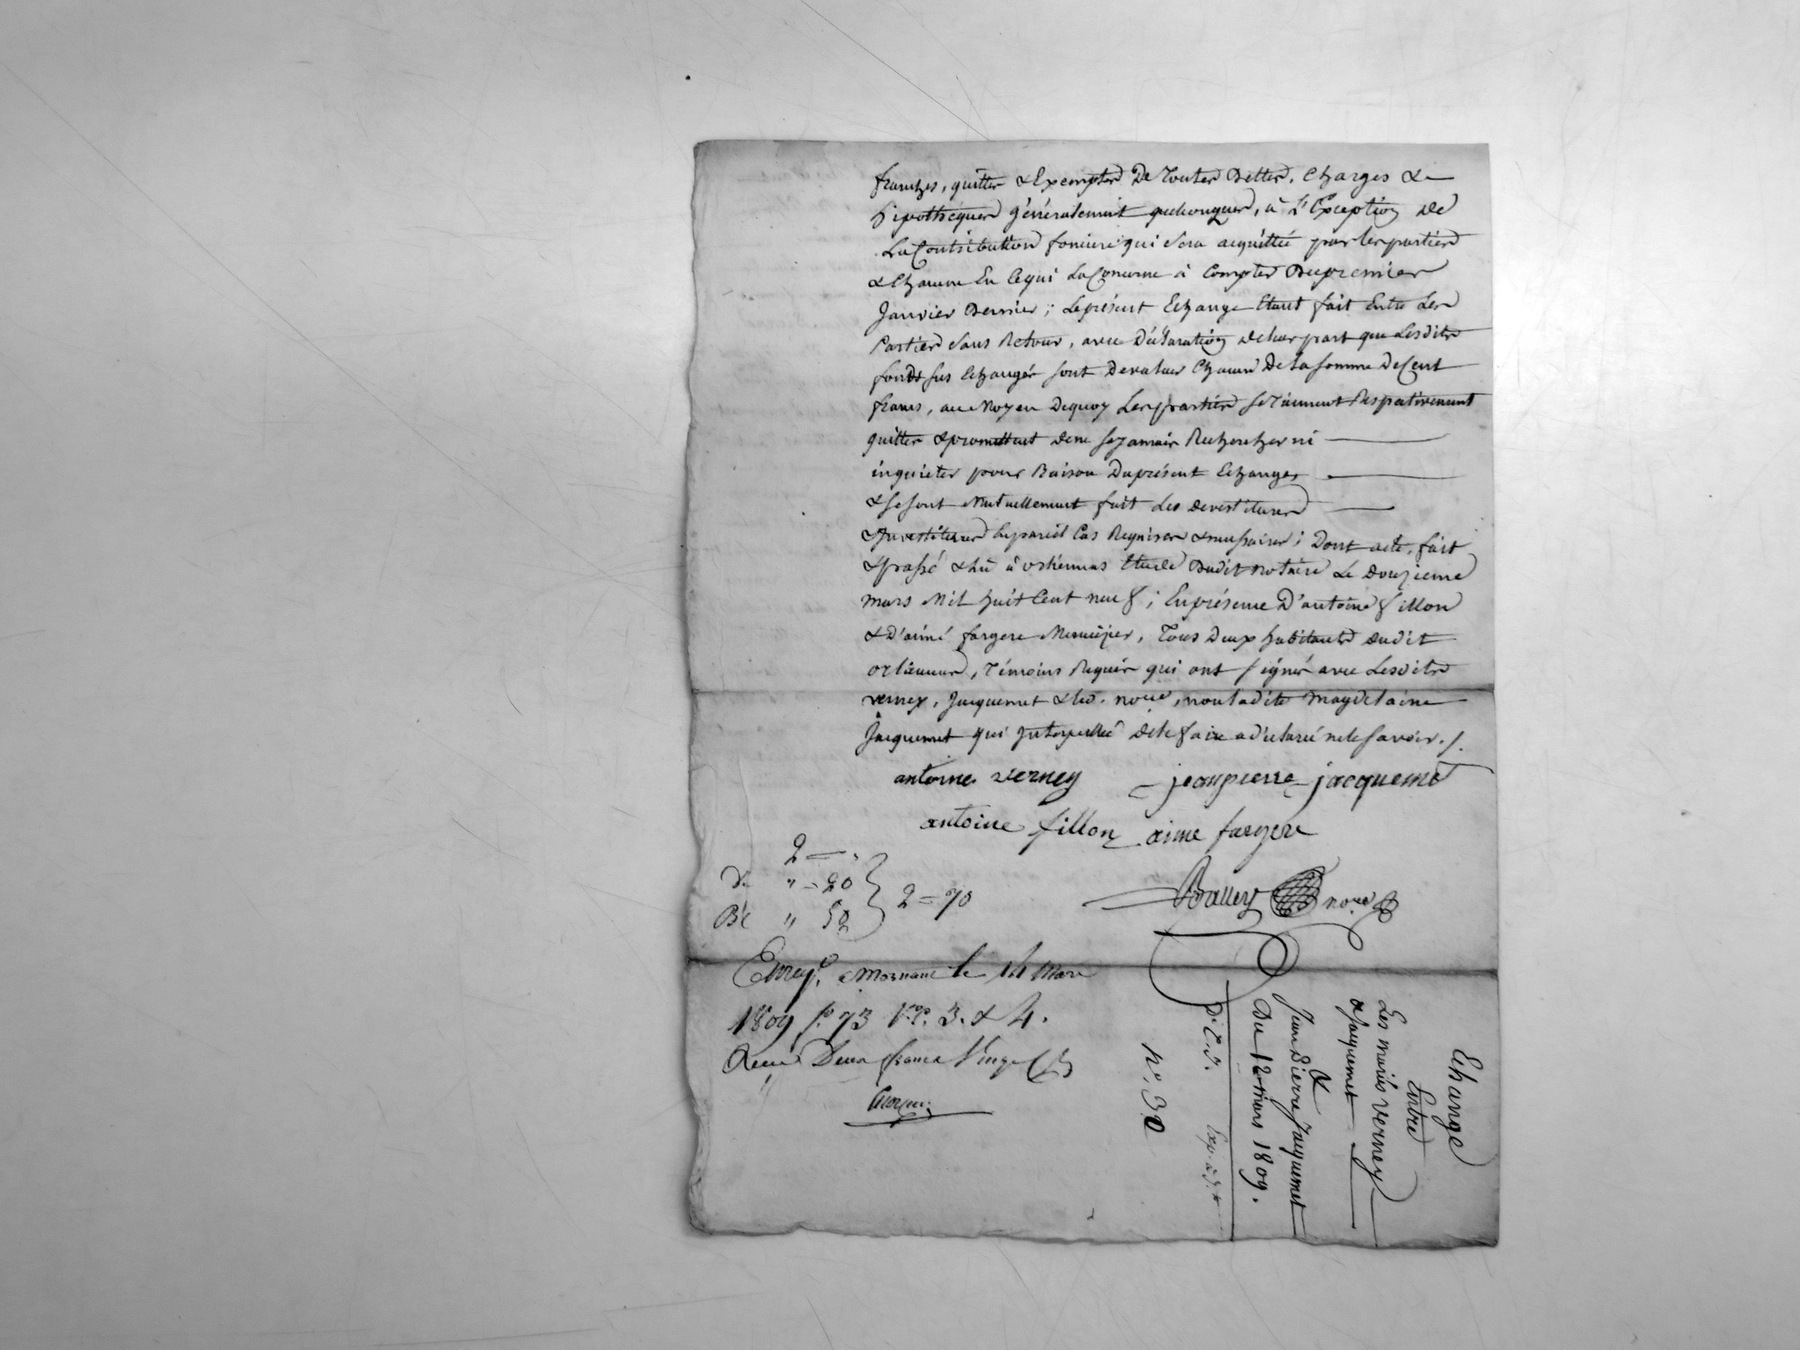 franches, quittes & Exemptes De Toutes Dettes, Charges &
hipothéques généralement quelconques, à L'Exception de
La Contribution fonciere qui sera acquittée par les parties
& Chacune En Ce qui La Concerne à Compter Du premier
Janvier Dernier ; Le présent Echange Etant fait Entre Les
Parties Sans Retour, avec Déclaration de leur part que Lesdits
fonds sus Echangés sont De valeur Chacun De La somme De Cent
francs, au Moyen De quoy Les parties se Tiennent Respectivement
quittes & promettent de ne se jamais Rechercher ni
inquieter pour Raison Du présent Echange,
& se sont Mutuellement fait Les devestitures
& Investitures En pareil Cas Requises & nécessaires ; Dont acte, fait
& passé & lû à orliennas Etude Dudit Notaire Le Douzieme
Mars Mil huit Cent neuf ; En présence D'antoine fillon
& D'aimé fargere Menuizier, Tous Deux habitants dudit
orlienas, Témoins Requis qui ont signé avec Lesdits
verney, Jacquemet & led. no.re, non Ladite Magdelaine
Jacquemet qui Interpellée de le faire a déclaré ne le savoir ./.
antoine verney jean pierre jacquemet
antoine fillon aime fargere
2 = "
De " = 20
Bt " 50
2 = 70
Balley no.re
Enreg.é à Mornant le 14 Mars
1809 f.o 73 V.o C. 3. & 4.
Recu Deux francs Vingt
Echange
Entre
Les mariés verney
& Jacquemet
&
Jean Pierre Jacquemet
Du 12 Mars 1809.
N.o 30